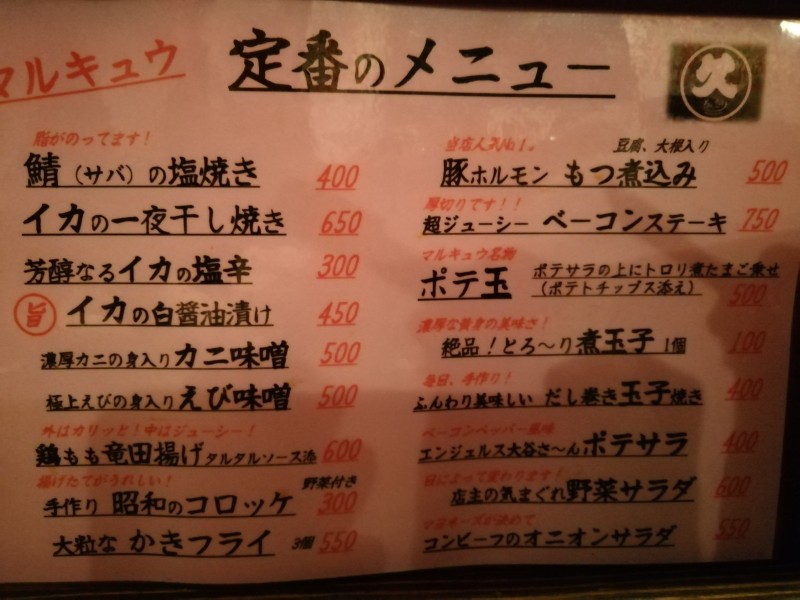 マルキュウ
定番のメニュー
久
脂がのってます!
鯖(サバ)の塩焼き 400
イカの一夜干し焼き 650
芳醇なるイカの塩辛 300
旨 イカの白醤油漬け 450
濃厚カニの身入りカニ味噌 500
極上えびの身入りえび味噌 500
外はカリッと!中はジューシー!
鶏もも竜田揚げタルタルソース添 600
揚げたてがうれしい! 野菜付き
手作り 昭和のコロッケ 300
大粒な かきフライ 3個 550
当店人気No1。 豆腐、大根入り
豚ホルモン もつ煮込み 500
厚切りです!!
超ジューシー ベーコンステーキ 750
マルキュウ名物
ポテ玉 ポテサラの上にトロリ煮たまご乗せ
(ポテトチップス添え) 500
濃厚な黄身の美味さ!
絶品!とろ〜り煮玉子 1個 100
毎日、手作り!
ふんわり美味しい だし巻き玉子焼き 400
ベーコンペッパー風味
エンジェルス大谷さ〜んポテサラ 400
日によって変わります!
店主の気まぐれ野菜サラダ 600
マヨネーズが決めて
コンビーフのオニオンサラダ 550